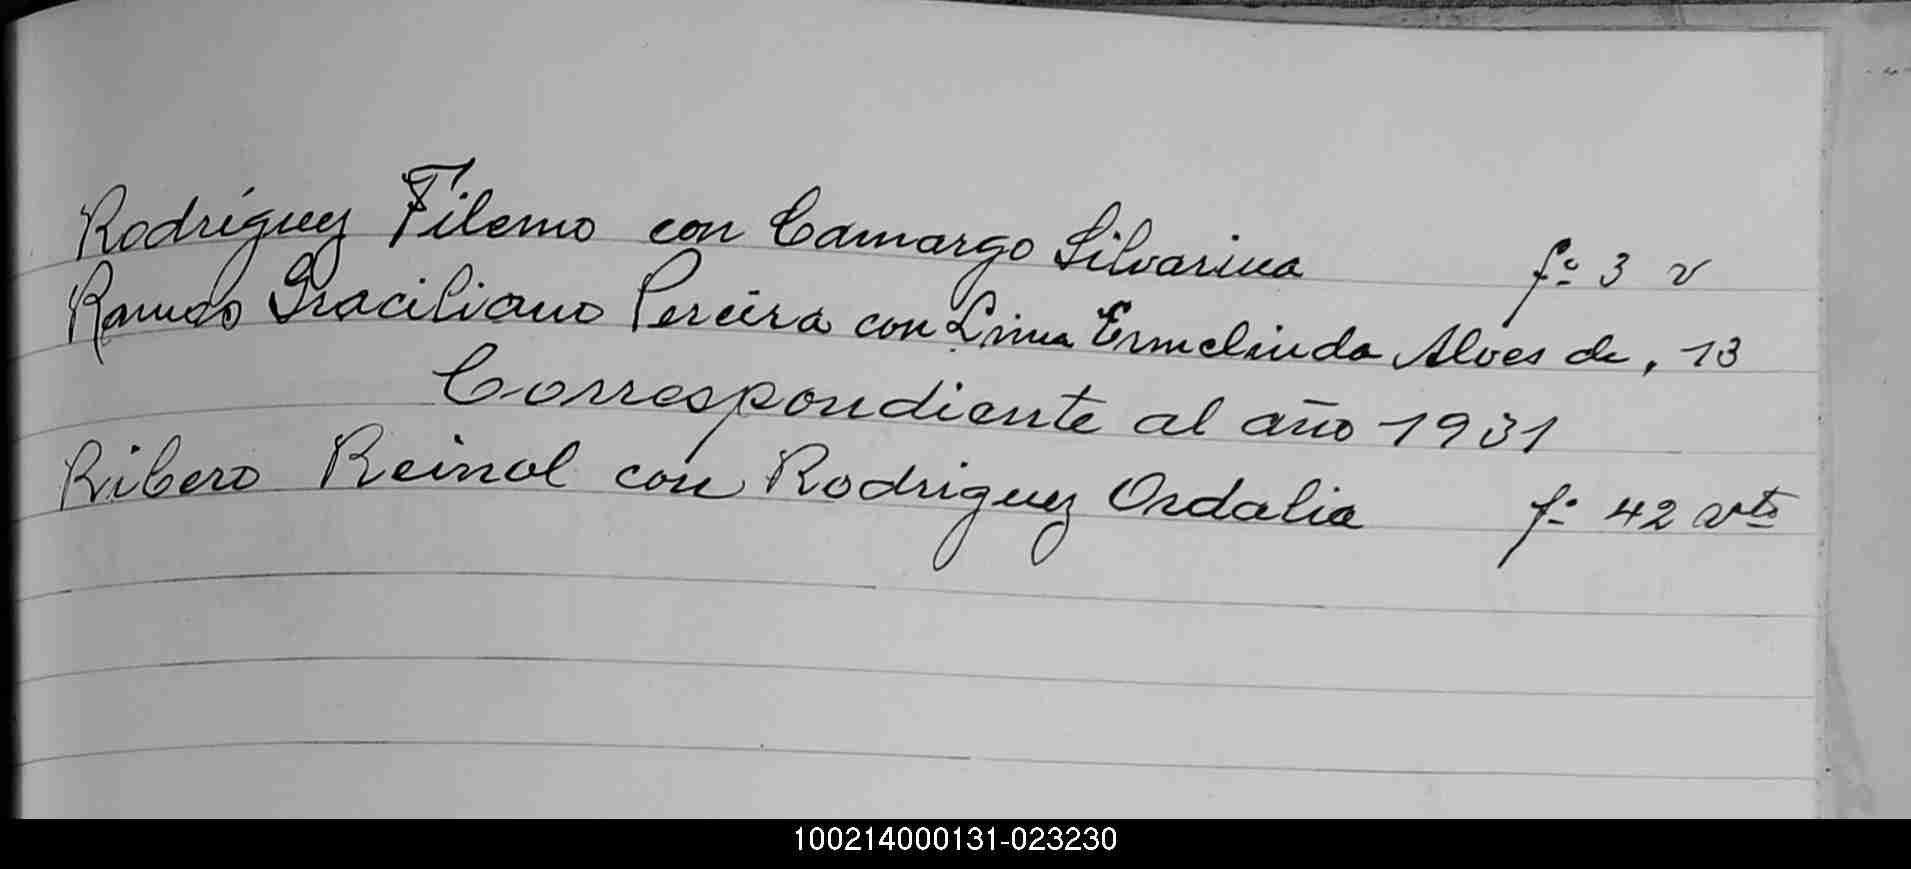 Rodríguez Filemo con Camargo Silvarina fº 3 v
Ramos Graciliano Pereira con Lima Ermelinda Alves de, 13
Correspondiente al año 1931
Ribero Reinol con Rodriguez Ordalia fº 42 vto
100214000131-023230